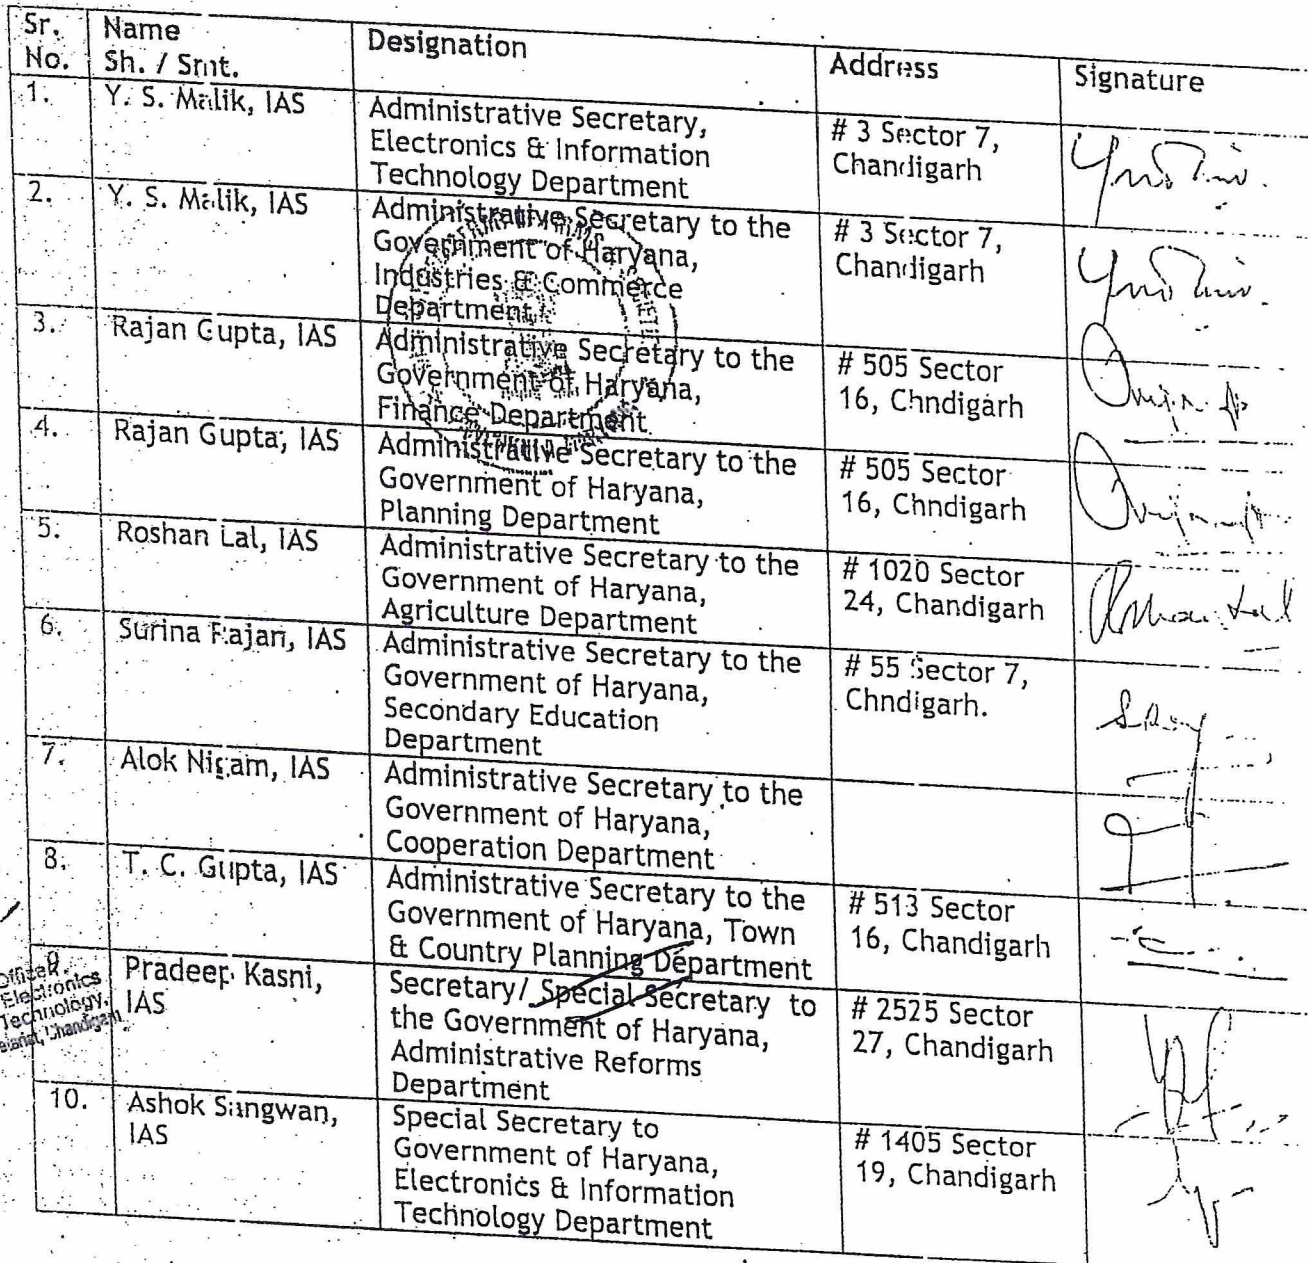 Sr. No. Name Sh. / Smt. Designation Address Signature
1. Y. S. Malik, IAS
Administrative Secretary,
Electronics & Information
Technology Department
# 3 Sector 7,
Chandigarh
2. Y. S. Malik, IAS
Administrative Secretary to the
Government of Haryana,
Industries & Commerce
Department
# 3 Sector 7,
Chandigarh
3. Rajan Gupta, IAS
Administrative Secretary to the
Government of Haryana,
Finance Department
# 505 Sector
16, Chndigarh
4. Rajan Gupta, IAS
Administrative Secretary to the
Government of Haryana,
Planning Department
# 505 Sector
16, Chndigarh
5. Roshan Lal, IAS
Administrative Secretary to the
Government of Haryana,
Agriculture Department
# 1020 Sector
24, Chandigarh
6. Surina Rajan, IAS
Administrative Secretary to the
Government of Haryana,
Secondary Education
Department
# 55 Sector 7,
Chndigarh.
7. Alok Nigam, IAS
Administrative Secretary to the
Government of Haryana,
Cooperation Department
8. T. C. Gupta, IAS
Administrative Secretary to the
Government of Haryana, Town
& Country Planning Department
# 513 Sector
16, Chandigarh
9. Pradeep Kasni,
IAS
Secretary/ Special Secretary to
the Government of Haryana,
Administrative Reforms
Department
# 2525 Sector
27, Chandigarh
Electronics
Technology,
Chandigarh
10. Ashok Sangwan,
IAS
Special Secretary to
Government of Haryana,
Electronics & Information
Technology Department
# 1405 Sector
19, Chandigarh